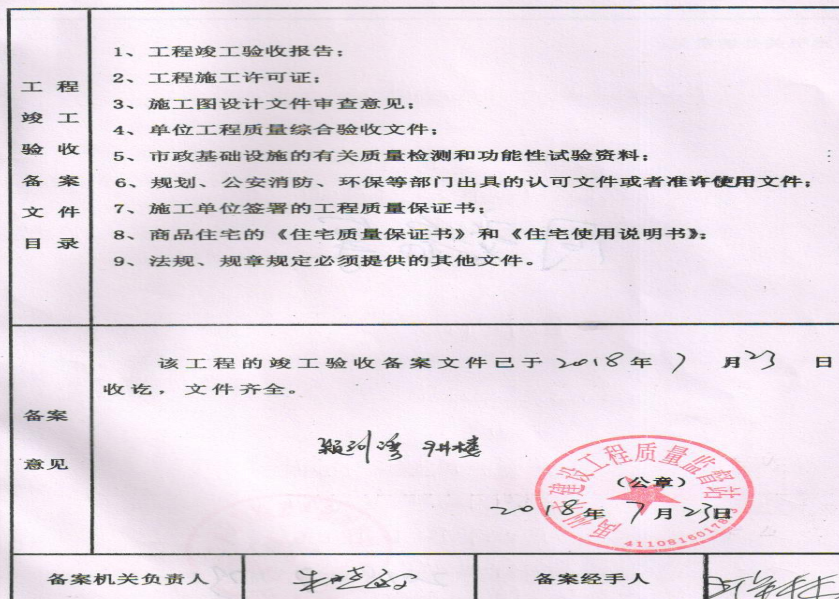 工程
竣工
验收
备案
文件
目录
1、工程竣工验收报告;
2、工程施工许可证;
3、施工图设计文件审查意见;
4、单位工程质量综合验收文件;
5、市政基础设施的有关质量检测和功能性试验资料;
6、规划、公安消防、环保等部门出具的认可文件或者准许使用文件;
7、施工单位签署的工程质量保证书;
8、商品住宅的《住宅质量保证书》和《住宅使用说明书》;
9、法规、规章规定必须提供的其他文件。
备案
意见
该工程的竣工验收备案文件已于2018年7月23日
收讫,文件齐全。
禹州市建设工程质量监督站
(公章)
2018年7月23日
备案机关负责人
备案经手人